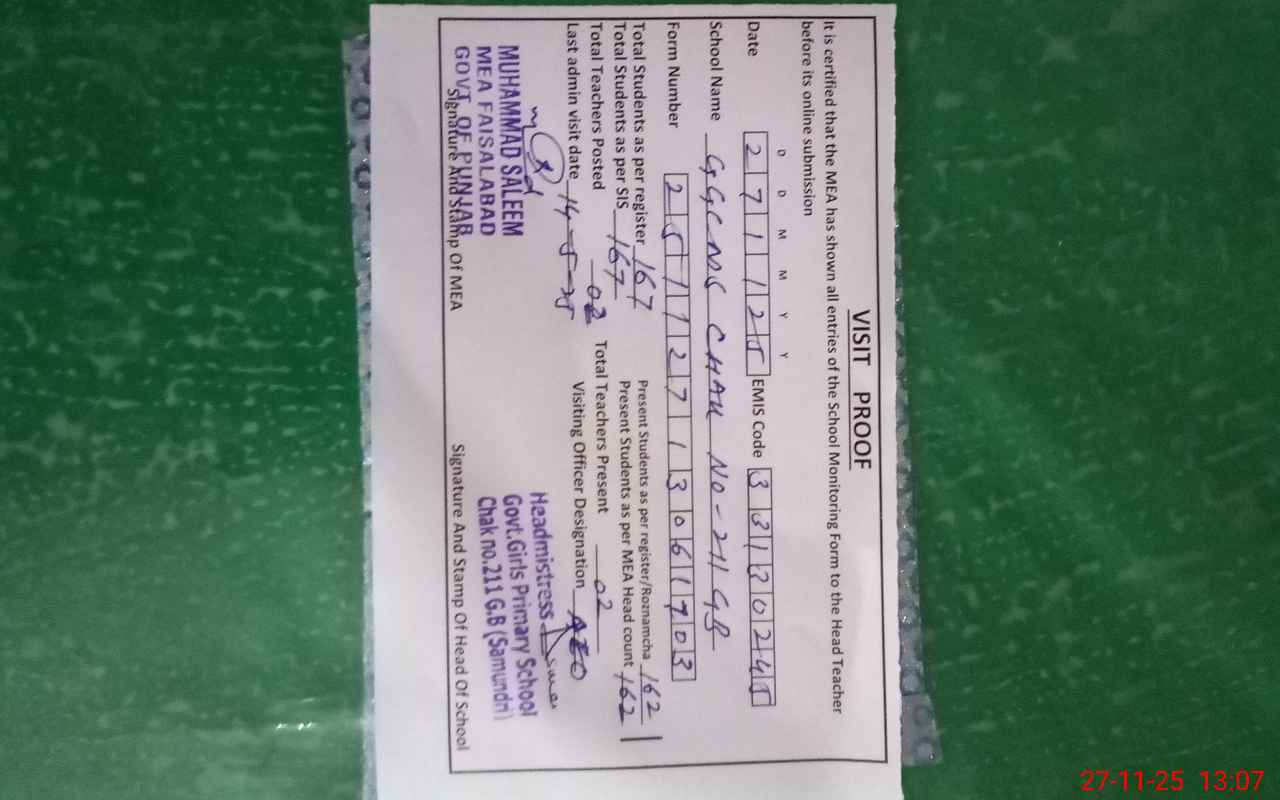 VISIT PROOF
It is certified that the MEA has shown all entries of the School Monitoring Form to the Head Teacher
before its online submission
D D M M Y Y
Date 271125 EMIS Code 33130245
School Name GGCMS CHAK NO-211 GB
Form Number 25112713061703
Total Students as per register 167 Present Students as per register/Roznamcha 162
Total Students as per SIS 167 Present Students as per MEA Head count 162
Total Teachers Posted 02 Total Teachers Present 02
Last admin visit date 14-5-25 Visiting Officer Designation AEO
MUHAMMAD SALEEM
MEA FAISALABAD
GOVT. OF PUNJAB
Headmistress
Govt.Girls Primary School
Chak no.211 G.B (Samundri)
Signature And Stamp Of MEA Signature And Stamp Of Head Of School
27-11-25 13:07